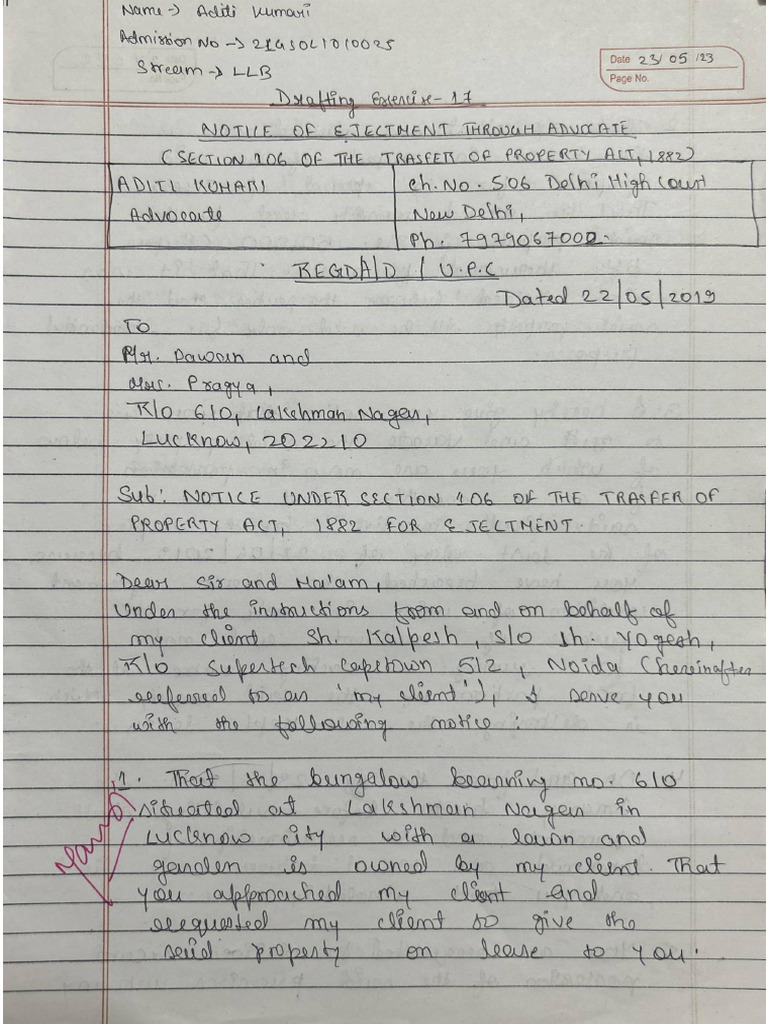 Name → Aditi Kumari
Admission No → 21GSOL1010025
Stream → LLB
Date 23/05/23
Page No.
Drafting Exercise-17
NOTICE OF EJECTMENT THROUGH ADVOCATE
(SECTION 106 OF THE TRASFER OF PROPERTY ACT, 1882)
ADITI KUMARI
Advocate
Ch. No. 506 Delhi High Court
New Delhi,
Ph. 7979067002.
REGDA/D / U.P.C
Dated 22/05/2019
To
Mr. Pawan and
Mrs. Pragya,
R/o 610, Lakshman Nagar,
Lucknow, 202210
Sub: NOTICE UNDER SECTION 106 OF THE TRASFER OF
PROPERTY ACT, 1882 FOR EJECTMENT.
Dear Sir and Ma'am,
Under the instructions from and on behalf of
my client Sh. Kalpesh, s/o Sh. Yogesh,
R/o Supertech Capetown 512, Noida (hereinafter
referred to as 'my client'), I serve you
with the following notice :
1. That the bungalow bearing no. 610
situated at Lakshman Nagar in
Lucknow city with a lawn and
garden is owned by my client. That
you approached my client and
requested my client to give the
said property on lease to you.